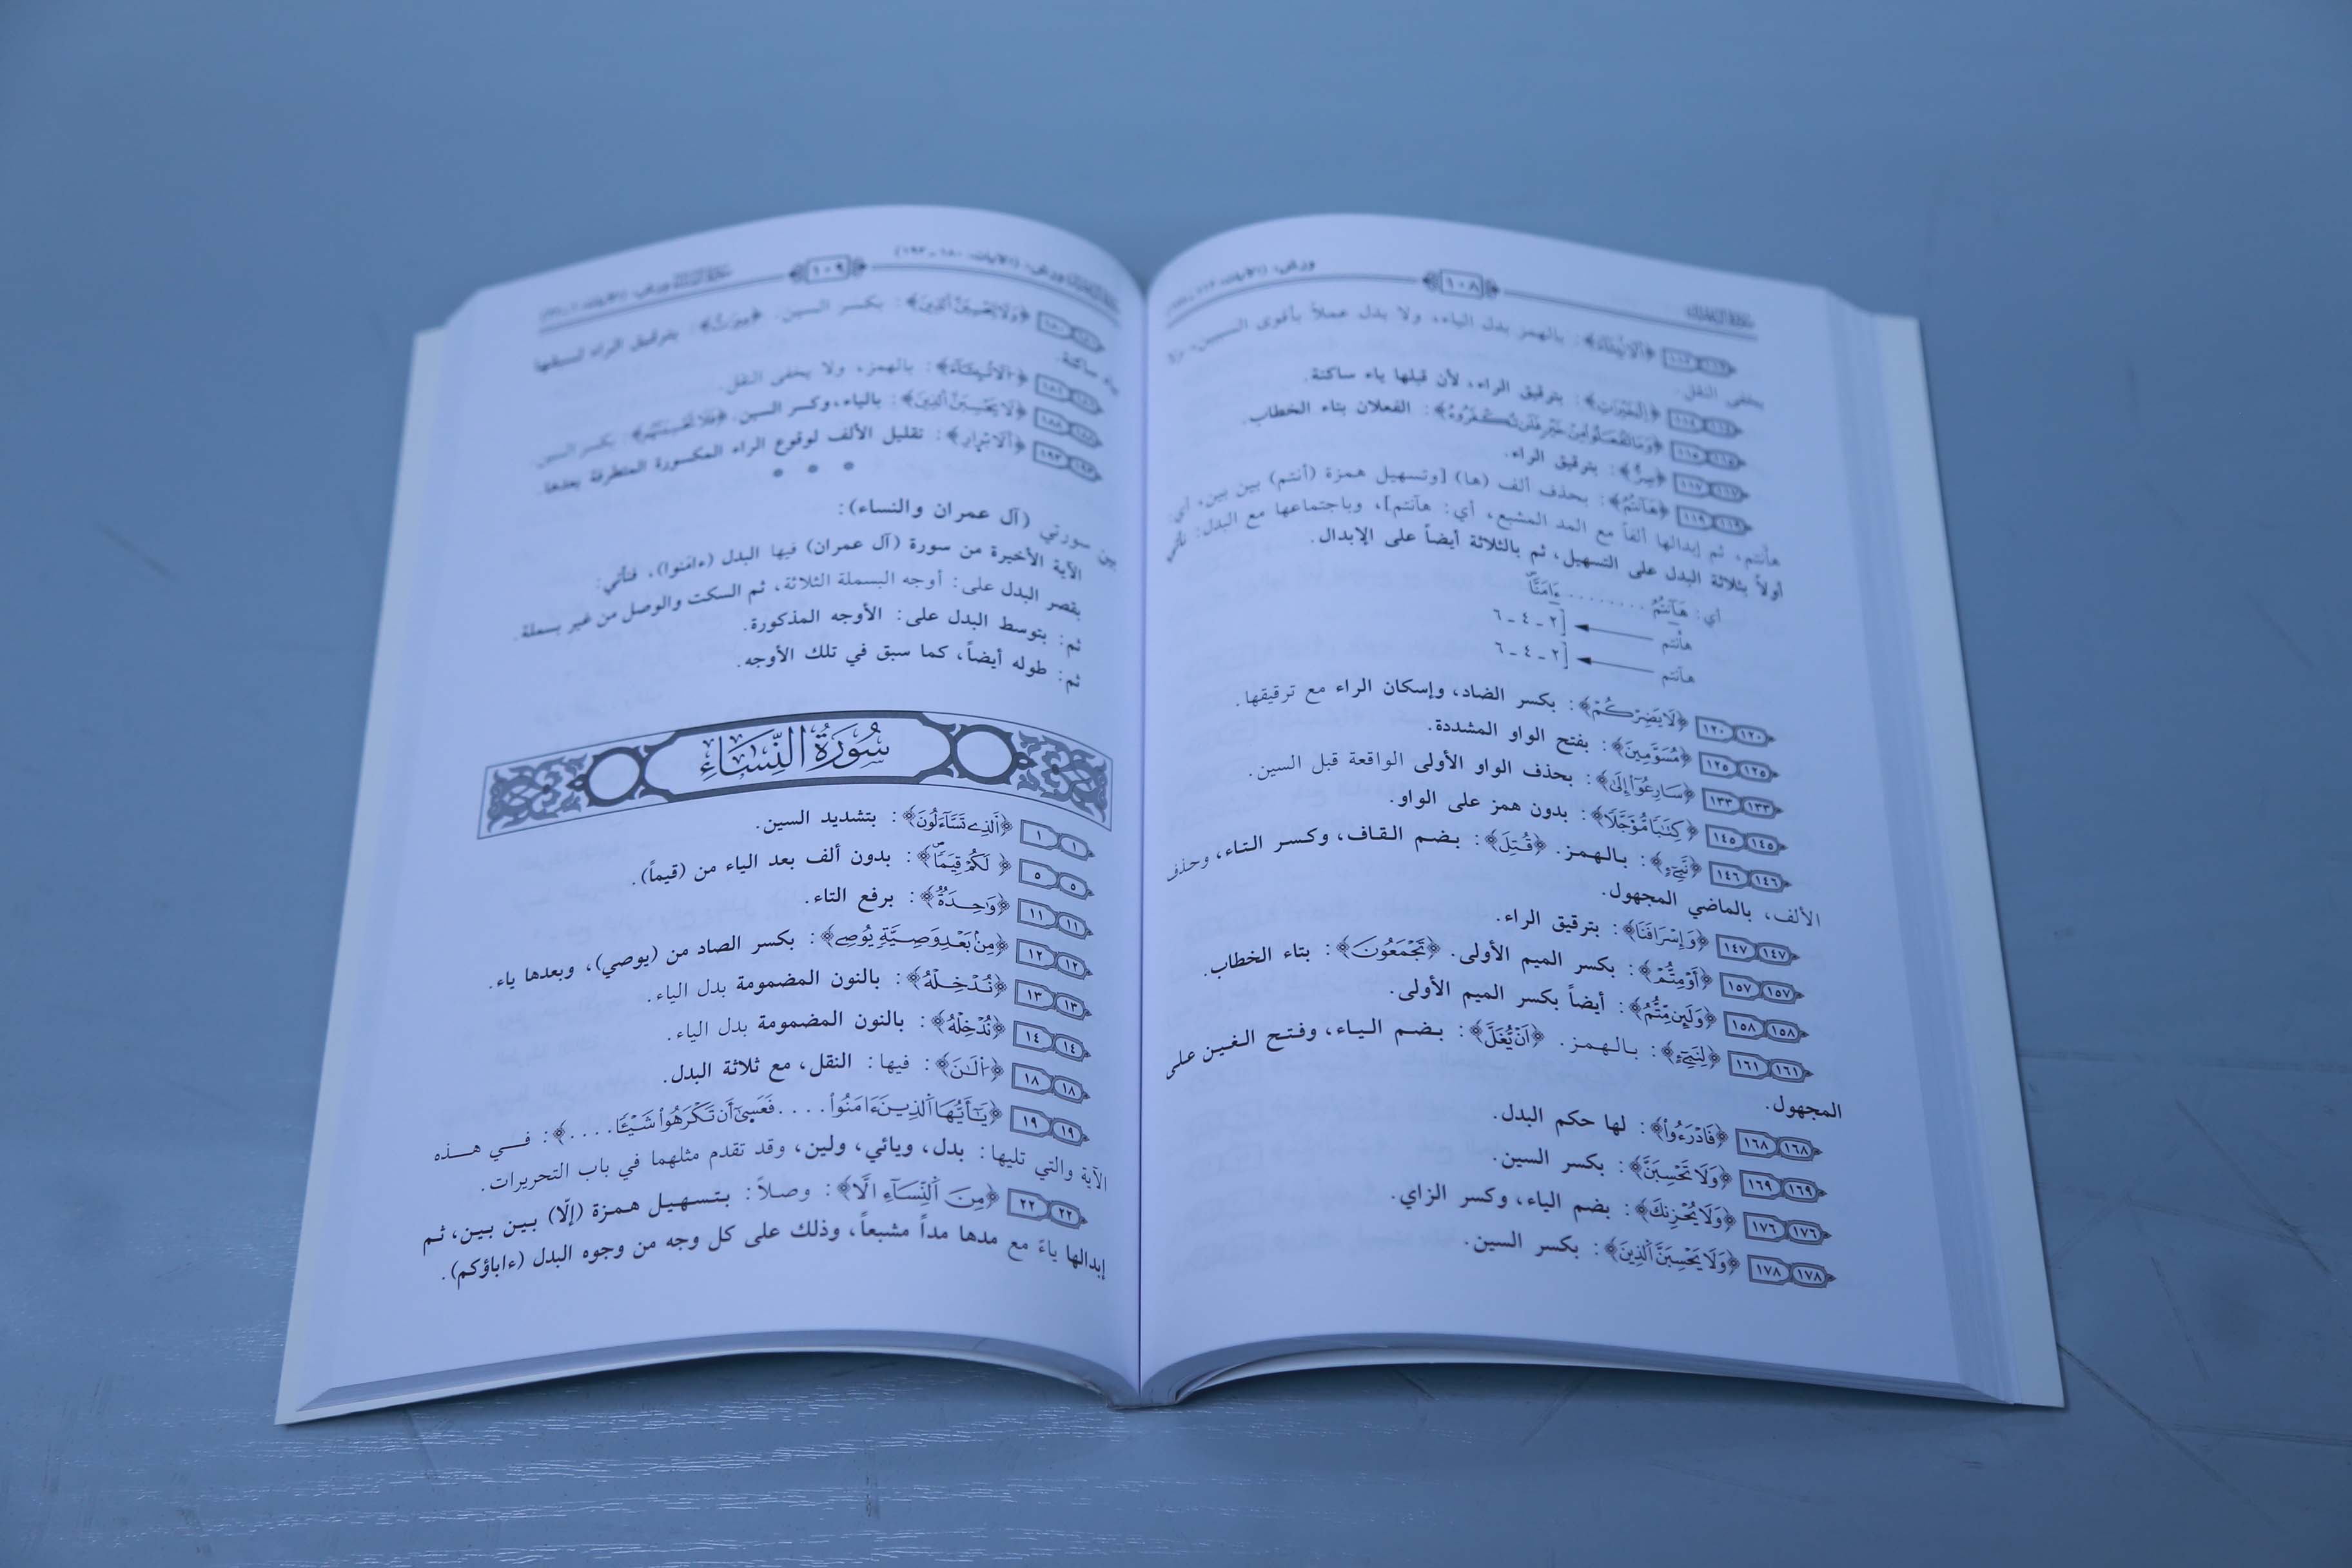 ١٠٨
﴿ٱلَانۢبِيَآءَ﴾: بالهمز بدل الياء، ولا بدل عملاً بأقوى السببين، ولا
يخفى النقل.
١١٤ ١١٤ ﴿اِ۬لْخَيْرَٰتِ﴾: بترقيق الراء، لأن قبلها ياء ساكنة.
١١٥ ١١٥ ﴿وَمَا تَفْعَلُواْ مِنْ خَيْرٖ فَلَن تُكْفَرُوهُ﴾: الفعلان بتاء الخطاب.
١١٧ ١١٧ ﴿صِرٌّ﴾: بترقيق الراء.
١١٩ ١١٩ ﴿هَآنتُمُ﴾: بحذف ألف (ها) [وتسهيل همزة (أنتم) بين بين، أي:
هأنتم، ثم إبدالها ألفاً مع المد المشبع، أي: هآنتم]، وباجتماعها مع البدل: تأتي
أولاً بثلاثة البدل على التسهيل، ثم بالثلاثة أيضاً على الإبدال.
أي: هَآنتُمُ ........ ءَامَنَّا
هأنتم [٢ - ٤ - ٦
هآنتم [٢ - ٤ - ٦
١٢٠ ١٢٠ ﴿لَا يَضِرْكُمْ﴾: بكسر الضاد، وإسكان الراء مع ترقيقها.
١٢٥ ١٢٥ ﴿مُسَوَّمِينَ﴾: بفتح الواو المشددة.
١٣٣ ١٣٣ ﴿سَارِعُوٓاْ إِلَىٰ﴾: بحذف الواو الأولى الواقعة قبل السين.
١٤٥ ١٤٥ ﴿كِتَٰباٗ مُّوَجَّلاٗ﴾: بدون همز على الواو.
١٤٦ ١٤٦ ﴿نَّبِےٓءٖ﴾: بالهمز. ﴿قُتِلَ﴾: بضم القاف، وكسر التاء، وحذف
الألف، بالماضي المجهول.
١٤٧ ١٤٧ ﴿وَإِسْرَافَنَا﴾: بترقيق الراء.
١٥٧ ١٥٧ ﴿أَوْ مِتُّمْ﴾: بكسر الميم الأولى. ﴿تَجْمَعُونَ﴾: بتاء الخطاب.
١٥٨ ١٥٨ ﴿وَلَئِن مِّتُّمُ﴾: أيضاً بكسر الميم الأولى.
١٦١ ١٦١ ﴿لِنَبِےٓءٍ﴾: بالهمز. ﴿اَنْ يُّغَلَّ﴾: بضم الياء، وفتح الغين على
المجهول.
١٦٨ ١٦٨ ﴿فَادْرَءُواْ﴾: لها حكم البدل.
١٦٩ ١٦٩ ﴿وَلَا تَحْسِبَنَّ﴾: بكسر السين.
١٧٦ ١٧٦ ﴿وَلَا يُحْزِنكَ﴾: بضم الياء، وكسر الزاي.
١٧٨ ١٧٨ ﴿وَلَا يَحْسِبَنَّ اَ۬لذِينَ﴾: بكسر السين.
١٠٩
١٨٠ ١٨٠ ﴿وَلَا يَحْسِبَنَّ اَ۬لذِينَ﴾: بكسر السين. ﴿مِيرَٰثُ﴾: بترقيق الراء لسبقها
بياء ساكنة.
١٨١ ١٨١ ﴿اُ۬لَانۢبِيَآءَ﴾: بالهمز، ولا يخفى النقل.
١٨٨ ١٨٨ ﴿لَا يَحْسِبَنَّ اَ۬لذِينَ﴾: بالياء، وكسر السين. ﴿فَلَا تَحْسِبَنَّهُم﴾: بكسر السين.
١٩٣ ١٩٣ ﴿اَ۬لَابْرِارِ﴾: تقليل الألف لوقوع الراء المكسورة المتطرفة بعدها.
بين سورتي (آل عمران والنساء):
الآية الأخيرة من سورة (آل عمران) فيها البدل (ءامنوا)، فتأتي:
بقصر البدل على: أوجه البسملة الثلاثة، ثم السكت والوصل من غير بسملة.
ثم: بتوسط البدل على: الأوجه المذكورة.
ثم: طوله أيضاً، كما سبق في تلك الأوجه.
سُورَةُ النِّسَاءِ
١ ١ ﴿اَ۬لذِے تَسَّآءَلُونَ﴾: بتشديد السين.
٥ ٥ ﴿لَكُمْ قِيَماٗ﴾: بدون ألف بعد الياء من (قيماً).
١١ ١١ ﴿وَٰحِدَةٞ﴾: برفع التاء.
١٢ ١٢ ﴿مِنۢ بَعْدِ وَصِيَّةٖ يُوصِے﴾: بكسر الصاد من (يوصي)، وبعدها ياء.
١٣ ١٣ ﴿نُدْخِلْهُ﴾: بالنون المضمومة بدل الياء.
١٤ ١٤ ﴿نُدْخِلْهُ﴾: بالنون المضمومة بدل الياء.
١٨ ١٨ ﴿اُ۬لَٰنَ﴾: فيها: النقل، مع ثلاثة البدل.
١٩ ١٩ ﴿يَٰٓأَيُّهَا اَ۬لذِينَ ءَامَنُواْ .... فَعَسَىٰٓ أَن تَكْرَهُواْ شَيْـٔاٗ ....﴾: في هذه
الآية والتي تليها: بدل، ويائي، ولين، وقد تقدم مثلهما في باب التحريرات.
٢٢ ٢٢ ﴿مِنَ اَ۬لنِّسَآءِ الَّا﴾: وصلاً: بتسهيل همزة (إلّا) بين بين، ثم
إبدالها ياءً مع مدها مداً مشبعاً، وذلك على كل وجه من وجوه البدل (ءاباؤكم).